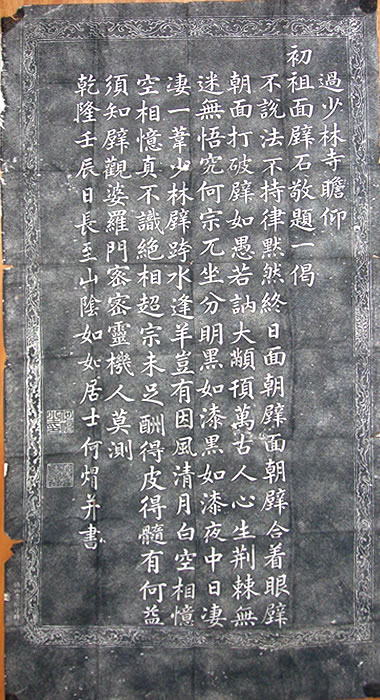 過少林寺瞻仰
初祖面壁石敬題一偈
不說法不持律默然終日面朝壁面朝壁合着眼壁
朝面打破壁如愚若訥大顢頇萬古人心生荆棘無
迷無悟究何宗兀坐分明黑如漆黑如漆夜中日凄
凄一葦少林壁跨水逢羊豈有因風清月白空相憶
空相憶真不識絶相超宗未足酬得皮得髓有何益
須知壁觀婆羅門密密靈機人莫測
乾隆壬辰日長至山陰如如居士何煟并書